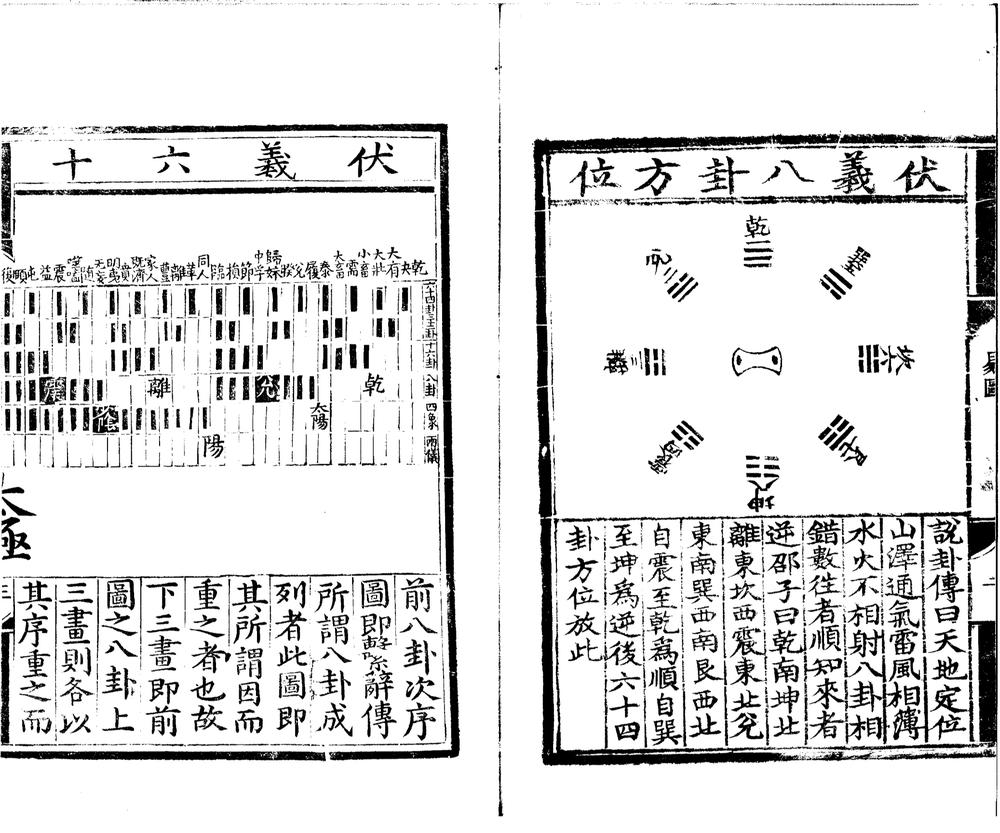 伏羲八卦方位
乾
兌
巽
離
坎
震
艮
坤
說卦傳曰天地定位
山澤通氣雷風相薄
水火不相射八卦相
錯數往者順知來者
逆邵子曰乾南坤北
離東坎西震東北兌
東南巽西南艮西北
自震至乾為順自巽
至坤為逆後六十四
卦方位放此
易圖
二
伏羲六十
乾
夬
大有
大壯
小畜
需
大畜
泰
履
兌
睽
歸妹
中孚
節
損
臨
同人
革
離
豐
家人
既濟
賁
明夷
无妄
隨
噬嗑
震
益
屯
頤
復
六十四卦
三十二卦
十六卦
八卦
四象
兩儀
乾
兌
離
震
太陽
少陰
陽
太極
前八卦次序
圖即繫辭傳
所謂八卦成
列者此圖即
其所謂因而
重之者也故
下三畫即前
圖之八卦上
三畫則各以
其序重之而